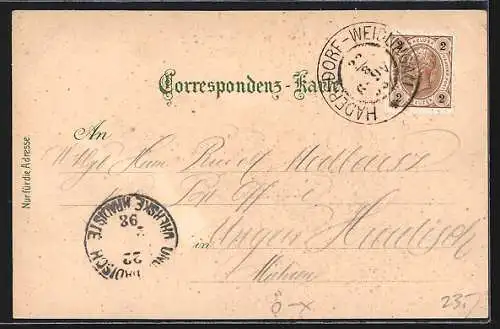 Correspondenz-Karte
HADERSDORF-WEIDLINGAU
2 2
2 2
Nur für die Adresse.
An
Wohlgb. Herrn Rudolf
Post
in Ungar. Hradisch
Mähren
UNG. HRADISCH
UHERSKÉ HRADIŠTĚ
22
98
23.-